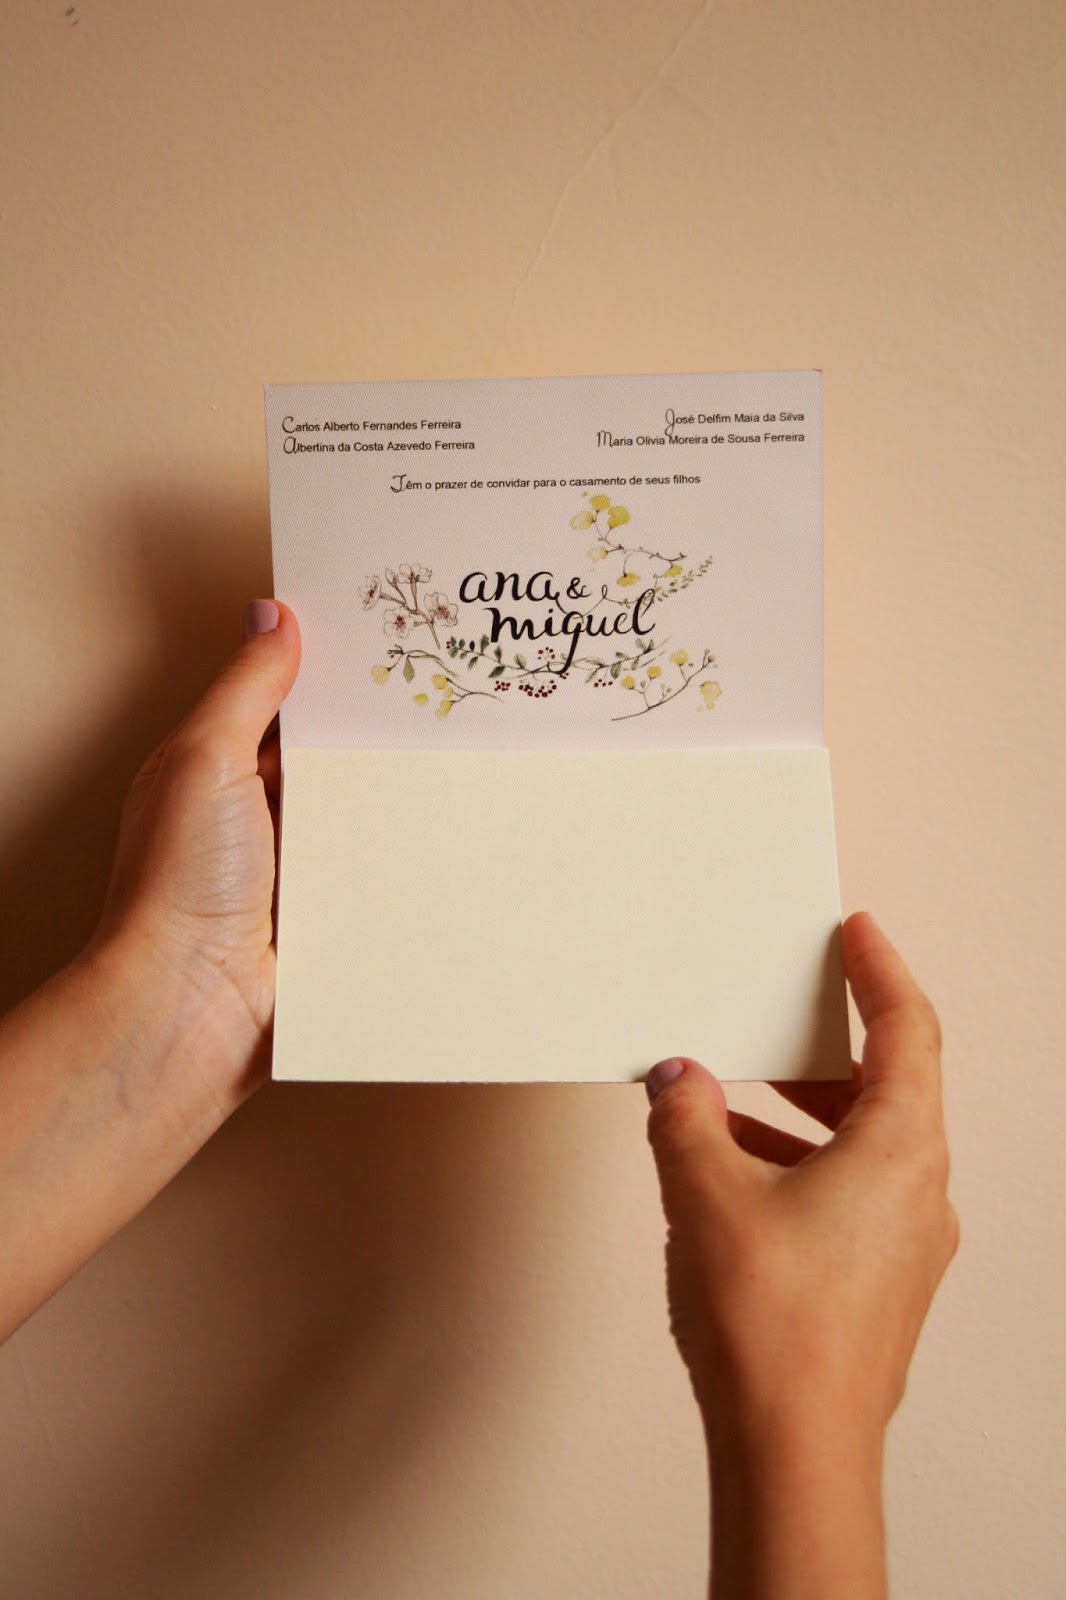 Carlos Alberto Fernandes Ferreira
Albertina da Costa Azevedo Ferreira
José Delfim Maia da Silva
Maria Olivia Moreira de Sousa Ferreira
Têm o prazer de convidar para o casamento de seus filhos
ana &
miguel